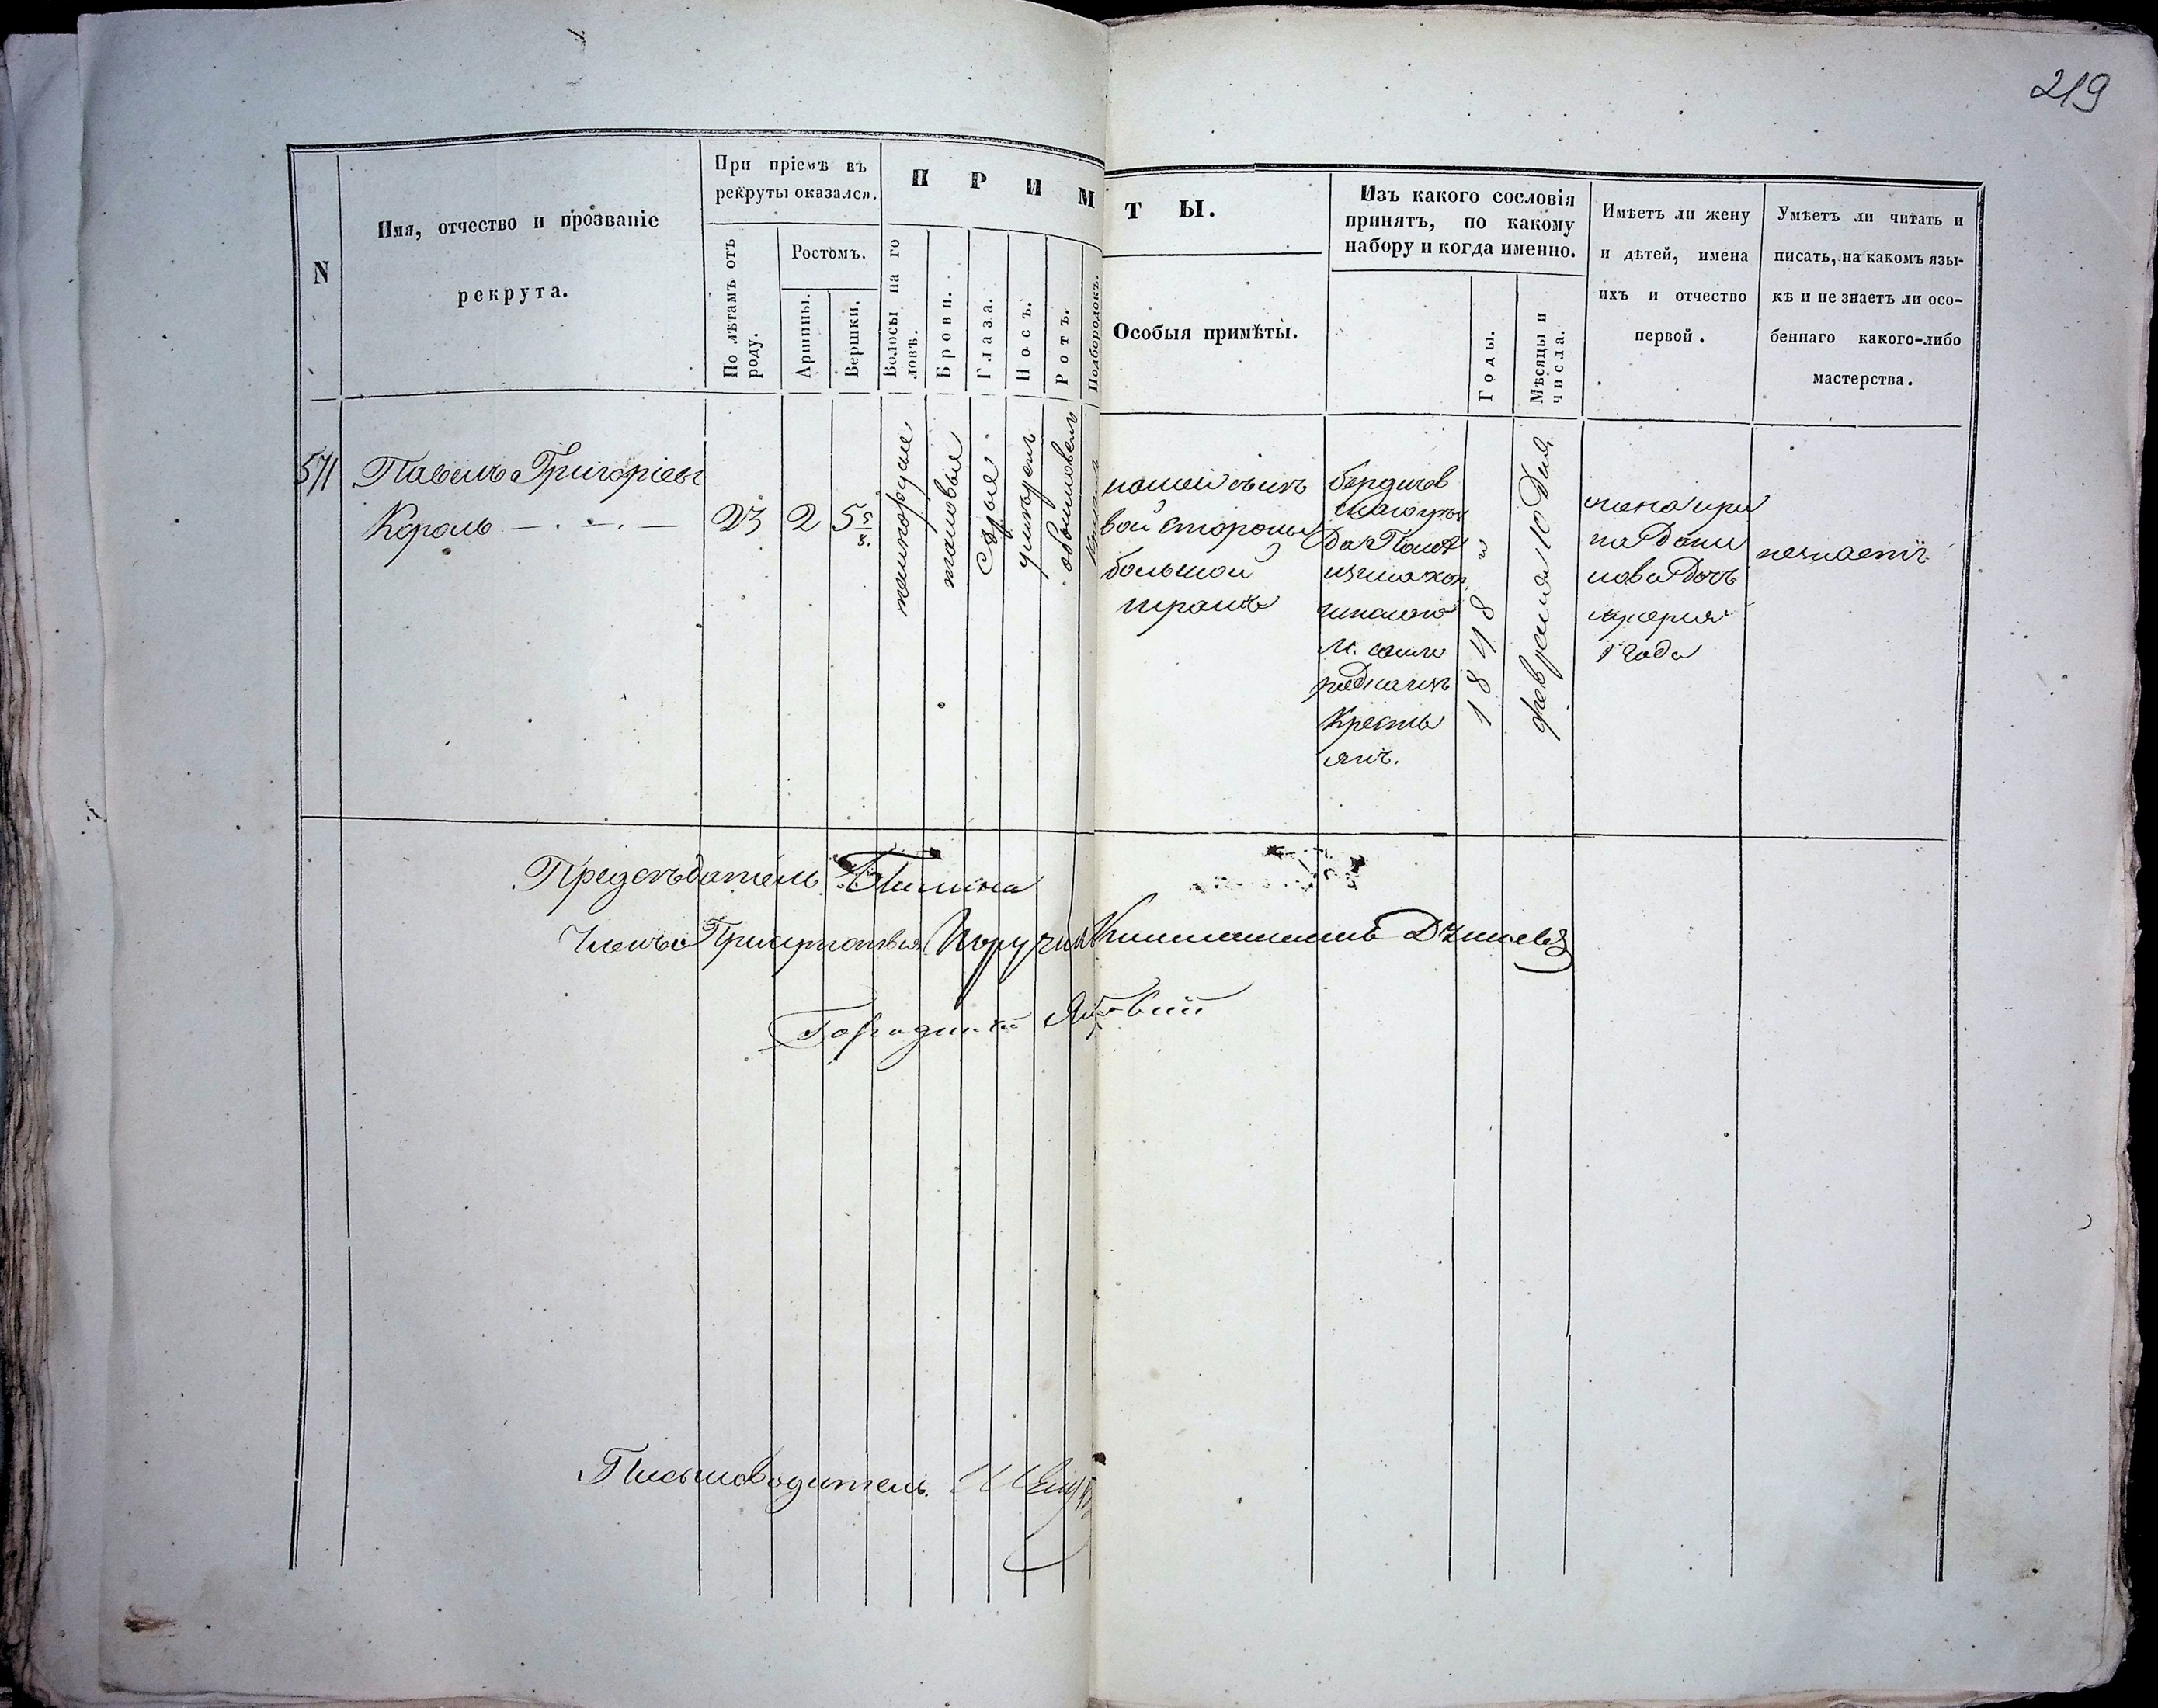 219
N
Имя, отчество и прозваніе
рекрута.
При пріемѣ въ
рекруты оказался.
По лѣтамъ отъ
роду.
Ростомъ.
Аршины.
Вершки.
П Р И М
Т Ы.
Волосы на го
ловѣ.
Брови.
Глаза.
Носъ.
Ротъ.
Подбородокъ.
Особыя примѣты.
Изъ какого сословія
принятъ, по какому
набору и когда именно.
Годы.
Мѣсяцы и
числа.
Имѣетъ ли жену
и дѣтей, имена
ихъ и отчество
первой.
Умѣетъ ли читать и
писать, на какомъ язы-
кѣ и не знаетъ ли осо-
беннаго какого-либо
мастерства.
571
Павелъ Григорьевъ
Король
23
2
5 5/8.
темнорусые
таковые
Сѣрые
умѣренъ
обыкновенъ
вой стороны
большой
шрамъ
бердичев
скаго уѣз
да
М.
Кресть
янъ.
1848
февраля 10 дня
жена Ири
на Дани
лова Дочь
1 года
незнаетъ
Предсѣдатель
Члены Присутствія Поручикъ
Городничій
Письмоводитель